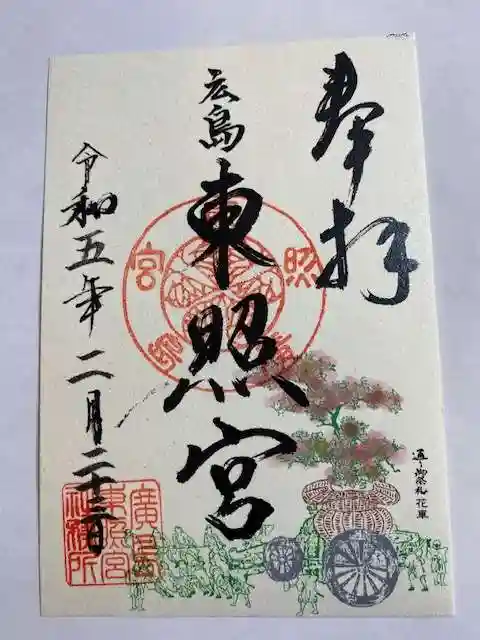 奉拝
広島
東照宮
令和五年二月二十三日
通り御祭礼花車
廣島
東照宮
社務所